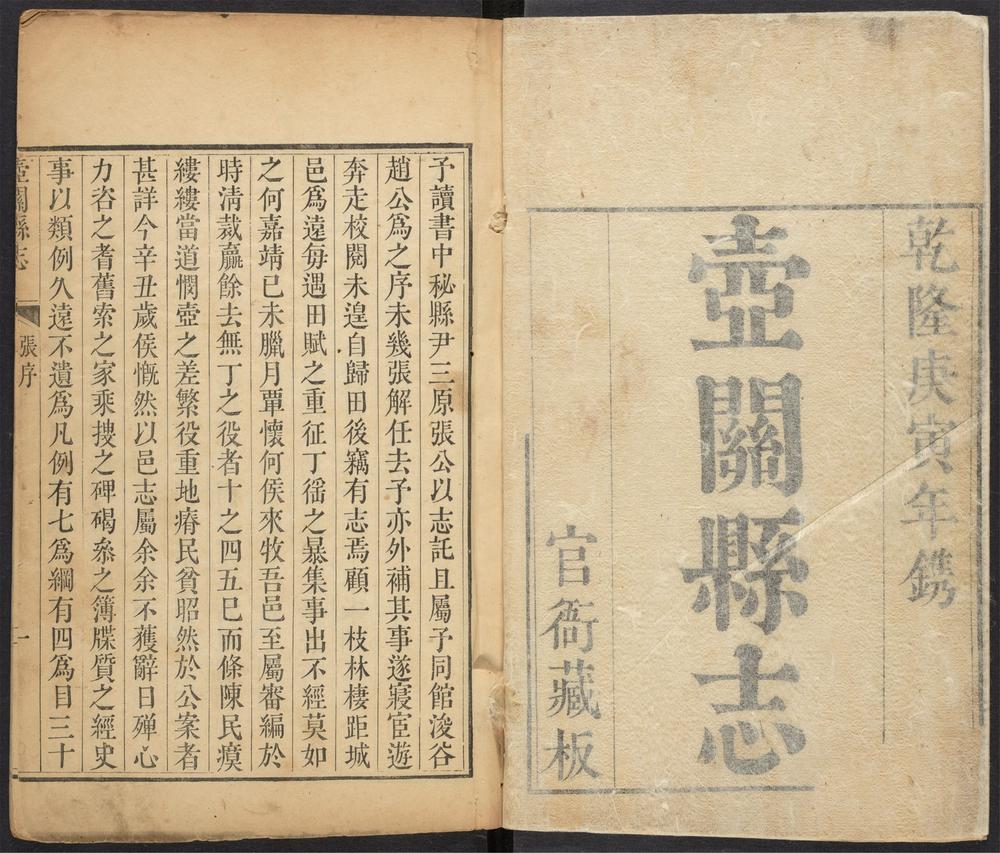 乾隆庚寅年鐫
壺關縣志
官衙藏板
予讀書中秘縣尹三原張公以志託且屬予同館浚谷
趙公爲之序未幾張解任去予亦外補其事遂寢宦遊
奔走校閱未遑自歸田後竊有志焉顧一枝林棲距城
邑爲遠每遇田賦之重征丁徭之暴集事出不經莫如
之何嘉靖己未臘月覃懷何侯來牧吾邑至屬審編於
時清裁羸餘去無丁之役者十之四五巳而條陳民瘼
縷縷當道憫壺之差繁役重地瘠民貧昭然於公案者
甚詳今辛丑歲侯慨然以邑志屬余余不獲辭日殫心
力咨之耆舊索之家乘搜之碑碣叅之簿牒質之經史
事以類例久遠不遺爲凡例有七爲綱有四爲目三十
壺關縣志
張序
一